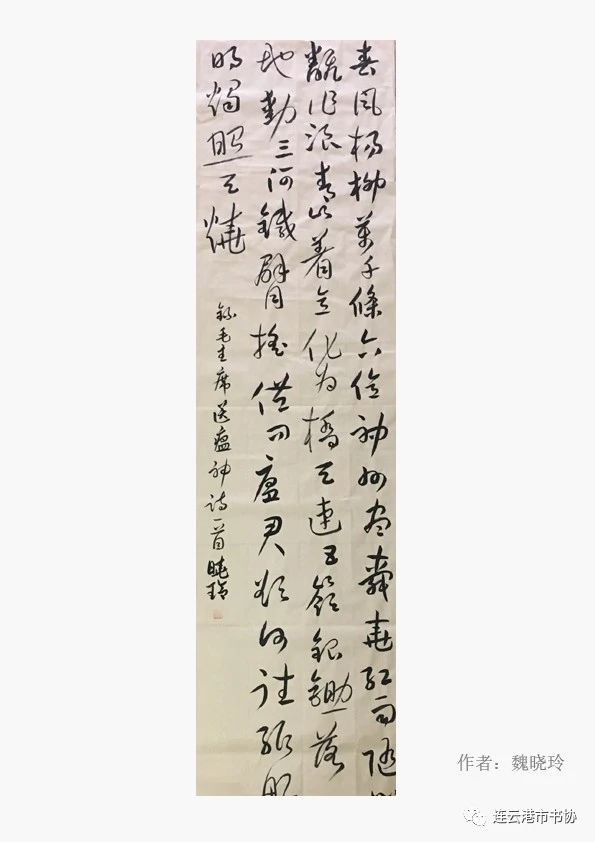 春風楊柳萬千條六億神州尽舜堯紅雨隨
翻作浪青山着意化为橋天連五嶺銀鋤落
地動三河鐵臂搖借问瘟君欲何往紙船
明燭照天燒
錄毛主席送瘟神诗一首曉玲
作者：魏晓玲
连云港市书协